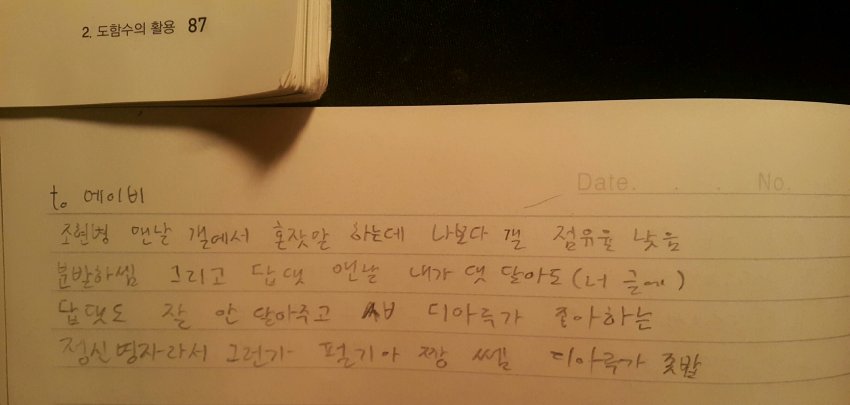 2. 도함수의 활용 87
Date. . . No.
to 에이비
조현병 맨날 갤에서 혼잣말 하는데 나보다 갤 점유율 낮음
분발하쎔 그리고 답댓 맨날 내가 댓 달아도 (너 글에)
답댓도 잘 안 달아주고 디아루가 좋아하는
정신병자라서 그런가 펄기아 짱 쎔 디아루가 좆밥